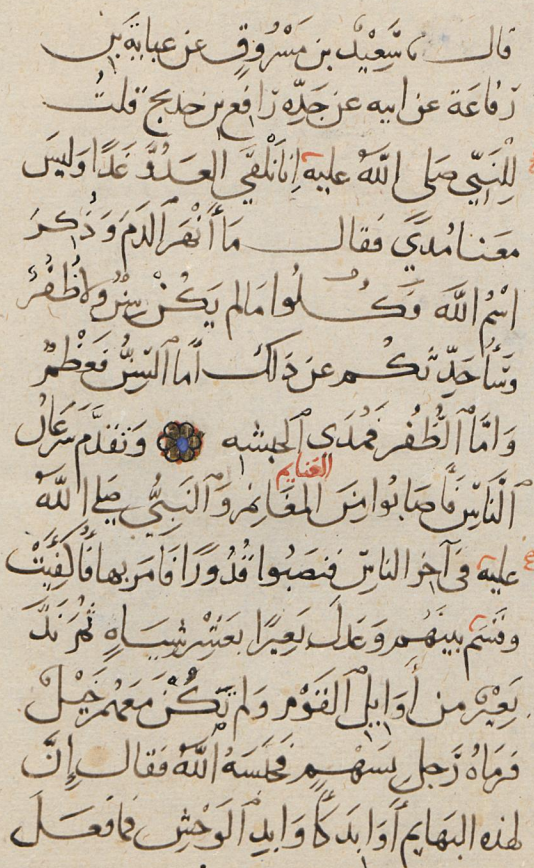 قال نا سَعِيْدُ بن مَسْرُوقٍ عن عباية بن
رفاعة عن ابيه عن جَدِّه رافع بن خديج قلتُ
لِلنَّبِيِّ صلى اللهُ عليه اِنا نَلْقَى العَدُوَّ غَدًا وليسَ
معنا مُدىً فقال مَا أَنْهَرَ الدَمَ وَذُكِرَ
اسْمُ اللهِ فَكُلُوا مَا لم يَكُنْ سِنٌّ ولا ظُفُرٌ
وَسَأُحَدِّثُكُم عن ذلك أَما السِّنُّ فعَظْمٌ
وَامَّا الظُّفُر فَمُدَى الحبشه وَتقَدَّم سَرَعَانُ
الغنايم
النَّاسِ فَاصَابُوا مِنَ المغَانِمِ وَالنبيُّ صلى اللهُ
عليه في آخر الناسِ فنصَبُوا قُدُورًا فَامَر بها فَأُكْفِيَتْ
وقَسَم بينهُم وَعَدَلَ بَعِيرًا بعَشْرِ شِيَاهٍ ثُمَّ نَدَّ
بَعِيْرٌ من أَوَايِلِ القَوْمِ ولم يَكُنْ مَعَهُم خَيْلٌ
فرَمَاهُ رَجل بسَهْمٍ فحَبَسَهُ اللهُ فقال إِنَّ
لهذه البهايم أَوَابدَ كَأَوَابدِ الوَحْشِ فما فعَلَ